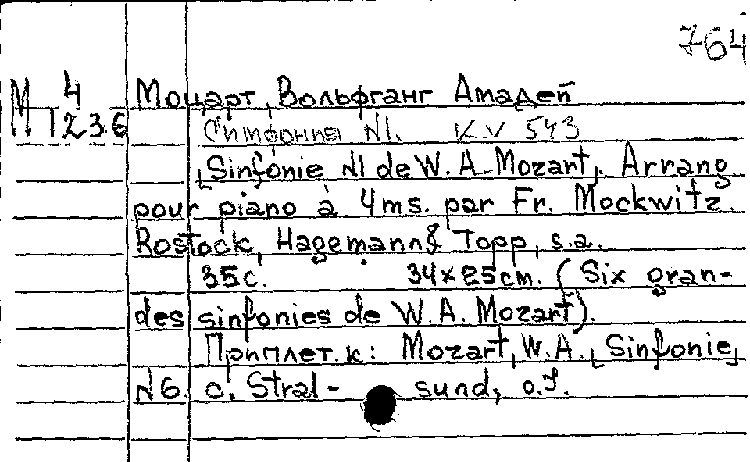 764
М 4 Моцарт, Вольфганг Амадей
1236 Симфония N1. KV 543
[Sinfonie N1 de W. A. Mozart, Arrang
pour piano à 4ms. par Fr. Mockwitz.
Rostock, Hagemann & Topp, s.a.
35с. 34×25cm. (Six gran-
des sinfonies de W. A. Mozart).
Приплет. к: Mozart, W.A. [Sinfonie,]
N6. c. Stral- sund, o.J.